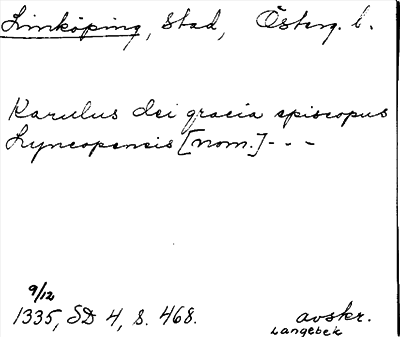 Linköping, stad, Österg. l.
Karulus dei gracia episcopus
Lyncopensis [nom.] - - -
9/12
1335, SD 4, s. 468.
avskr.
Langebek